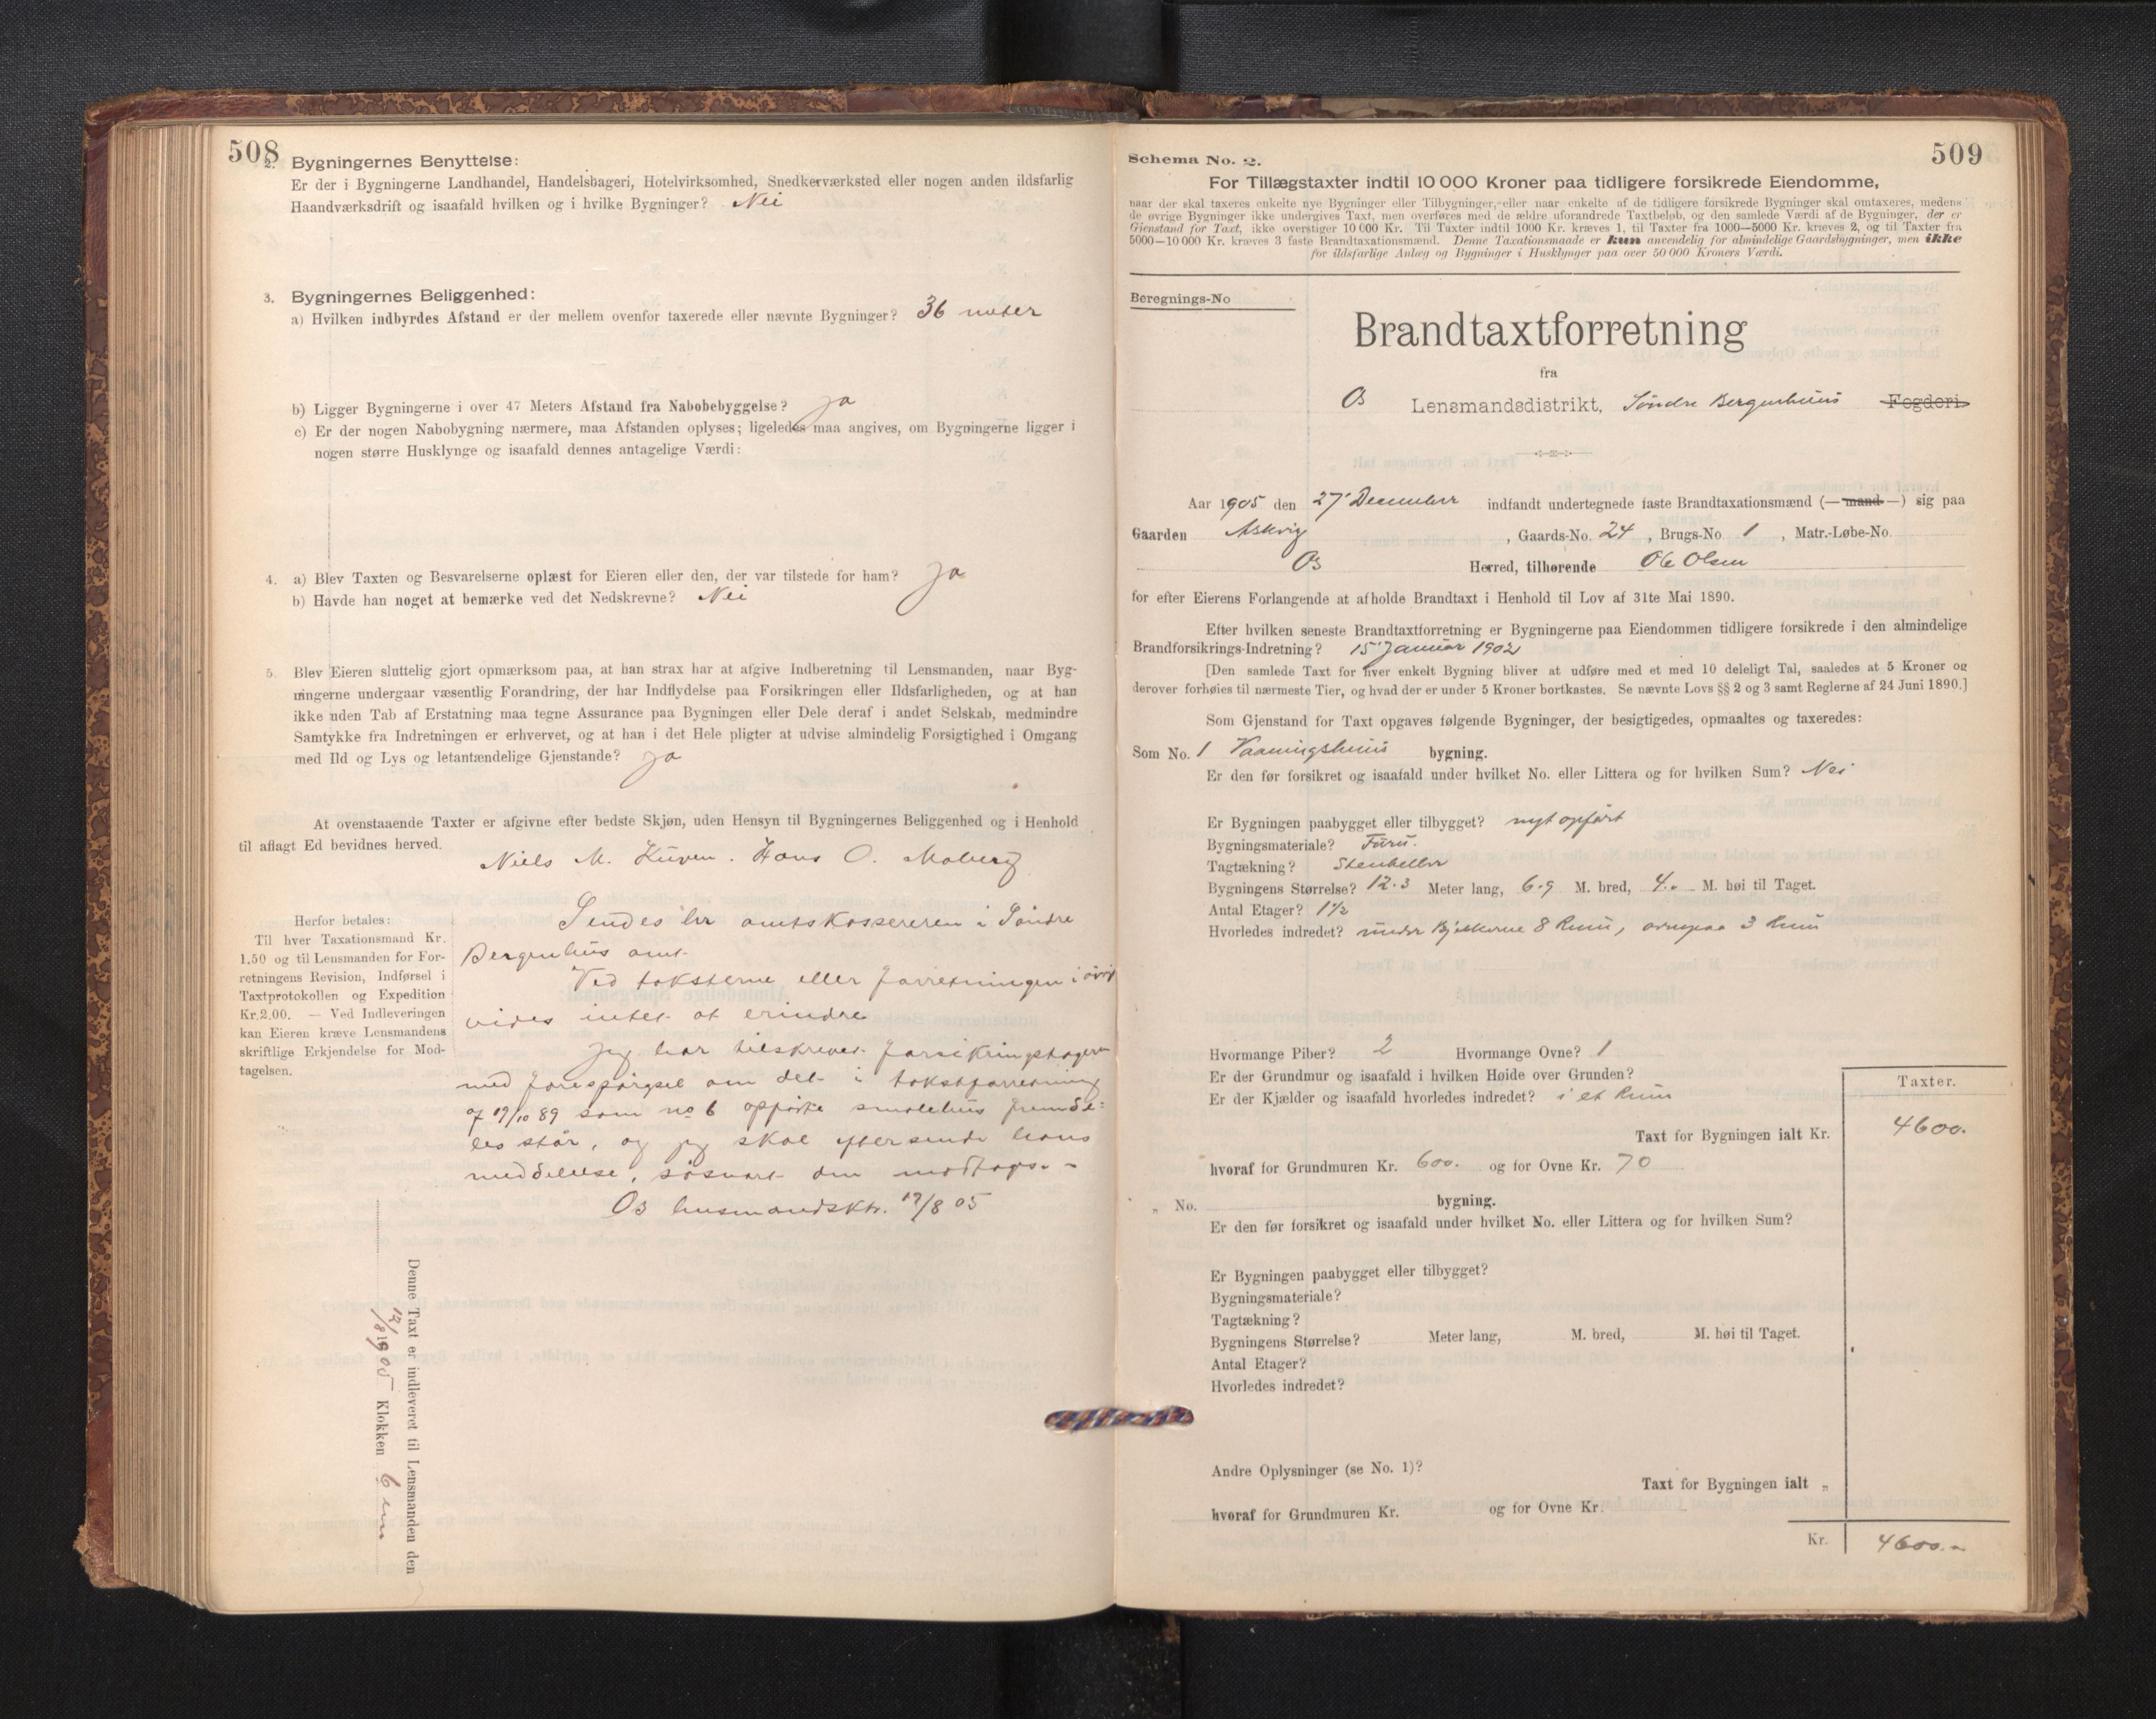 508
2. Bygningernes Benyttelse:
Er der i Bygningerne Landhandel, Handelsbageri, Hotelvirksomhed, Snedkerværksted eller nogen anden ildsfarlig
Haandværksdrift og isaafald hvilken og i hvilke Bygninger? Nei
3. Bygningernes Beliggenhed:
a) Hvilken indbyrdes Afstand er der mellem ovenfor taxerede eller nævnte Bygninger? 36 meter
b) Ligger Bygningerne i over 47 Meters Afstand fra Nabobebyggelse? Ja
c) Er der nogen Nabobygning nærmere, maa Afstanden oplyses; ligeledes maa angives, om Bygningerne ligger i
nogen større Husklynge og isaafald dennes antagelige Værdi:
4. a) Blev Taxten og Besvarelserne oplæst for Eieren eller den, der var tilstede for ham? Ja
b) Havde han noget at bemærke ved det Nedskrevne? Nei
5. Blev Eieren sluttelig gjort opmærksom paa, at han strax har at afgive Indberetning til Lensmanden, naar Byg-
ningerne undergaar væsentlig Forandring, der har Indflydelse paa Forsikringen eller Ildsfarligheden, og at han
ikke uden Tab af Erstatning maa tegne Assurance paa Bygningen eller Dele deraf i andet Selskab, medmindre
Samtykke fra Indretningen er erhvervet, og at han i det Hele pligter at udvise almindelig Forsigtighed i Omgang
med Ild og Lys og letantændelige Gjenstande? Ja
At ovenstaaende Taxter er afgivne efter bedste Skjøn, uden Hensyn til Bygningernes Beliggenhed og i Henhold
til aflagt Ed bevidnes herved.
Niels M. Kuven. Hans O. Moberg
Herfor betales:
Til hver Taxationsmand Kr.
1,50 og til Lensmanden for For-
retningens Revision, Indførsel i
Taxtprotokollen og Expedition
Kr. 2.00. — Ved Indleveringen
kan Eieren kræve Lensmandens
skriftlige Erkjendelse for Mod-
tagelsen.
Sendes hr amtskassereren i Söndre
Bergenhus amt.
Ved taksterne eller forretningen i övrigt
vides intet at erindre
Jeg har tilskrevet forsikringstageren
med forespörgsel om det i takstforretning
af 19/10 89 som no 6 opförte smalehus fremde=
les står, og jeg skal eftersende hans
meddelelse, såsnart den modtages. -
Os lensmandsktr. 17/8 05
Denne Taxt er indleveret til Lensmanden den
17/8 1905 Klokken 6 em
509
Schema No. 2.
For Tillægstaxter indtil 10 000 Kroner paa tidligere forsikrede Eiendomme,
naar der skal taxeres enkelte nye Bygninger eller Tilbygninger, eller naar enkelte af de tidligere forsikrede Bygninger skal omtaxeres, medens
de øvrige Bygninger ikke undergives Taxt, men overføres med de ældre uforandrede Taxtbeløb, og den samlede Værdi af de Bygninger, der er
Gjenstand for Taxt, ikke overstiger 10 000 Kr. Til Taxter indtil 1000 Kr. kræves 1, til Taxter fra 1000—5000 Kr. kræves 2, og til Taxter fra
5000—10 000 Kr. kræves 3 faste Brandtaxationsmænd. Denne Taxationsmaade er kun anvendelig for almindelige Gaardsbygninger, men ikke
for ildsfarlige Anlæg og Bygninger i Husklynger paa over 50 000 Kroners Værdi.
Beregnings-No
Brandtaxtforretning
fra
Os Lensmandsdistrikt, Søndre Bergenhuus Fogderi
Aar 1905 den 27' December indfandt undertegnede faste Brandtaxationsmænd (— mand —) sig paa
Gaarden Askvig, Gaards-No. 24, Brugs-No. 1, Matr.-Løbe-No.
Os Herred, tilhørende Ole Olsen
for efter Eierens Forlangende at afholde Brandtaxt i Henhold til Lov af 31te Mai 1890.
Efter hvilken seneste Brandtaxtforretning er Bygningerne paa Eiendommen tidligere forsikrede i den almindelige
Brandforsikrings-Indretning? 15' Januar 1902
[Den samlede Taxt for hver enkelt Bygning bliver at udføre med et med 10 deleligt Tal, saaledes at 5 Kroner og
derover forhøies til nærmeste Tier, og hvad der er under 5 Kroner bortkastes. Se nævnte Lovs §§ 2 og 3 samt Reglerne af 24 Juni 1890.]
Som Gjenstand for Taxt opgaves følgende Bygninger, der besigtigedes, opmaaltes og taxeredes:
Som No. 1 Vaaningshuus bygning.
Er den før forsikret og isaafald under hvilket No. eller Littera og for hvilken Sum? Nei
Er Bygningen paabygget eller tilbygget? nyt opført
Bygningsmateriale? Furu.
Tagtækning? Stenheller
Bygningens Størrelse? 12.3 Meter lang, 6.9 M. bred, 4.. M. høi til Taget.
Antal Etager? 1½
Hvorledes indredet? under Bjelkerne 8 Rum, ovenpaa 3 Rum
Hvormange Piber? 2 Hvormange Ovne? 1
Er der Grundmur og isaafald i hvilken Høide over Grunden?
Er der Kjælder og isaafald hvorledes indredet? i et Rum
Taxter.
Taxt for Bygningen ialt Kr. 4600.
hvoraf for Grundmuren Kr. 600. og for Ovne Kr. 70
„ No. bygning.
Er den før forsikret og isaafald under hvilket No. eller Littera og for hvilken Sum?
Er Bygningen paabygget eller tilbygget?
Bygningsmateriale?
Tagtækning?
Bygningens Størrelse? Meter lang, M. bred, M. høi til Taget.
Antal Etager?
Hvorledes indredet?
Andre Oplysninger (se No. 1)?
Taxt for Bygningen ialt „
hvoraf for Grundmuren Kr. og for Ovne Kr.
Kr. 4600.-